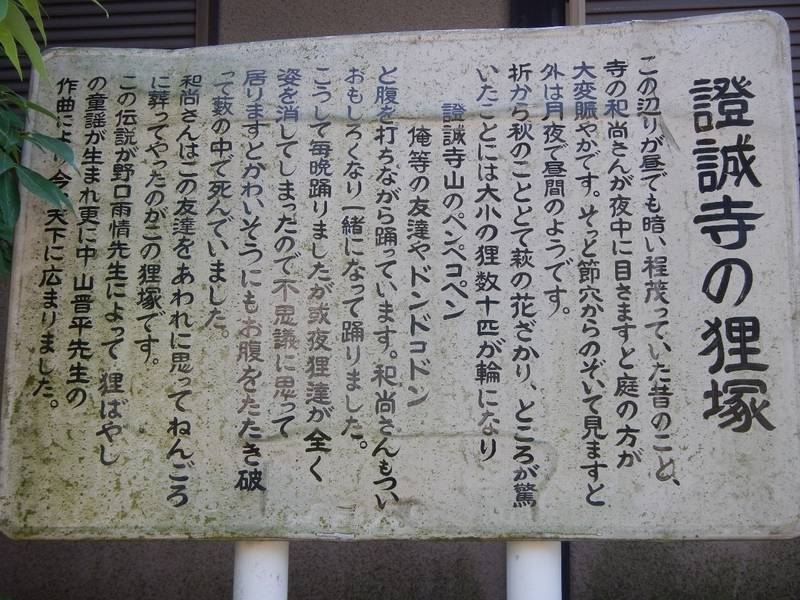 證誠寺の狸塚
この辺りが昼でも暗い程茂っていた昔のこと、
寺の和尚さんが夜中に目さますと庭の方が
大変賑やかです。そっと節穴からのぞいて見ますと
外は月夜で昼間のようです。
折から秋のこととて萩の花ざかり、ところが驚
いたことには大小の狸数十匹が輪になり
證誠寺山のペンペコペン
俺等の友達やドンドコドン
と腹を打ちながら踊っています。和尚さんもつい
おもしろくなり一緒になって踊りました。
こうして毎晩踊りましたが或夜狸達が全く
姿を消してしまったので不思議に思って
居りますとかわいそうにもお腹をたたき破
って藪の中で死んでいました。
和尚さんはこの友達をあわれに思ってねんごろ
に葬ってやったのがこの狸塚です。
この伝説が野口雨情先生によって狸ばやし
の童謡が生まれ更に中山晋平先生の
作曲により今天下に広まりました。